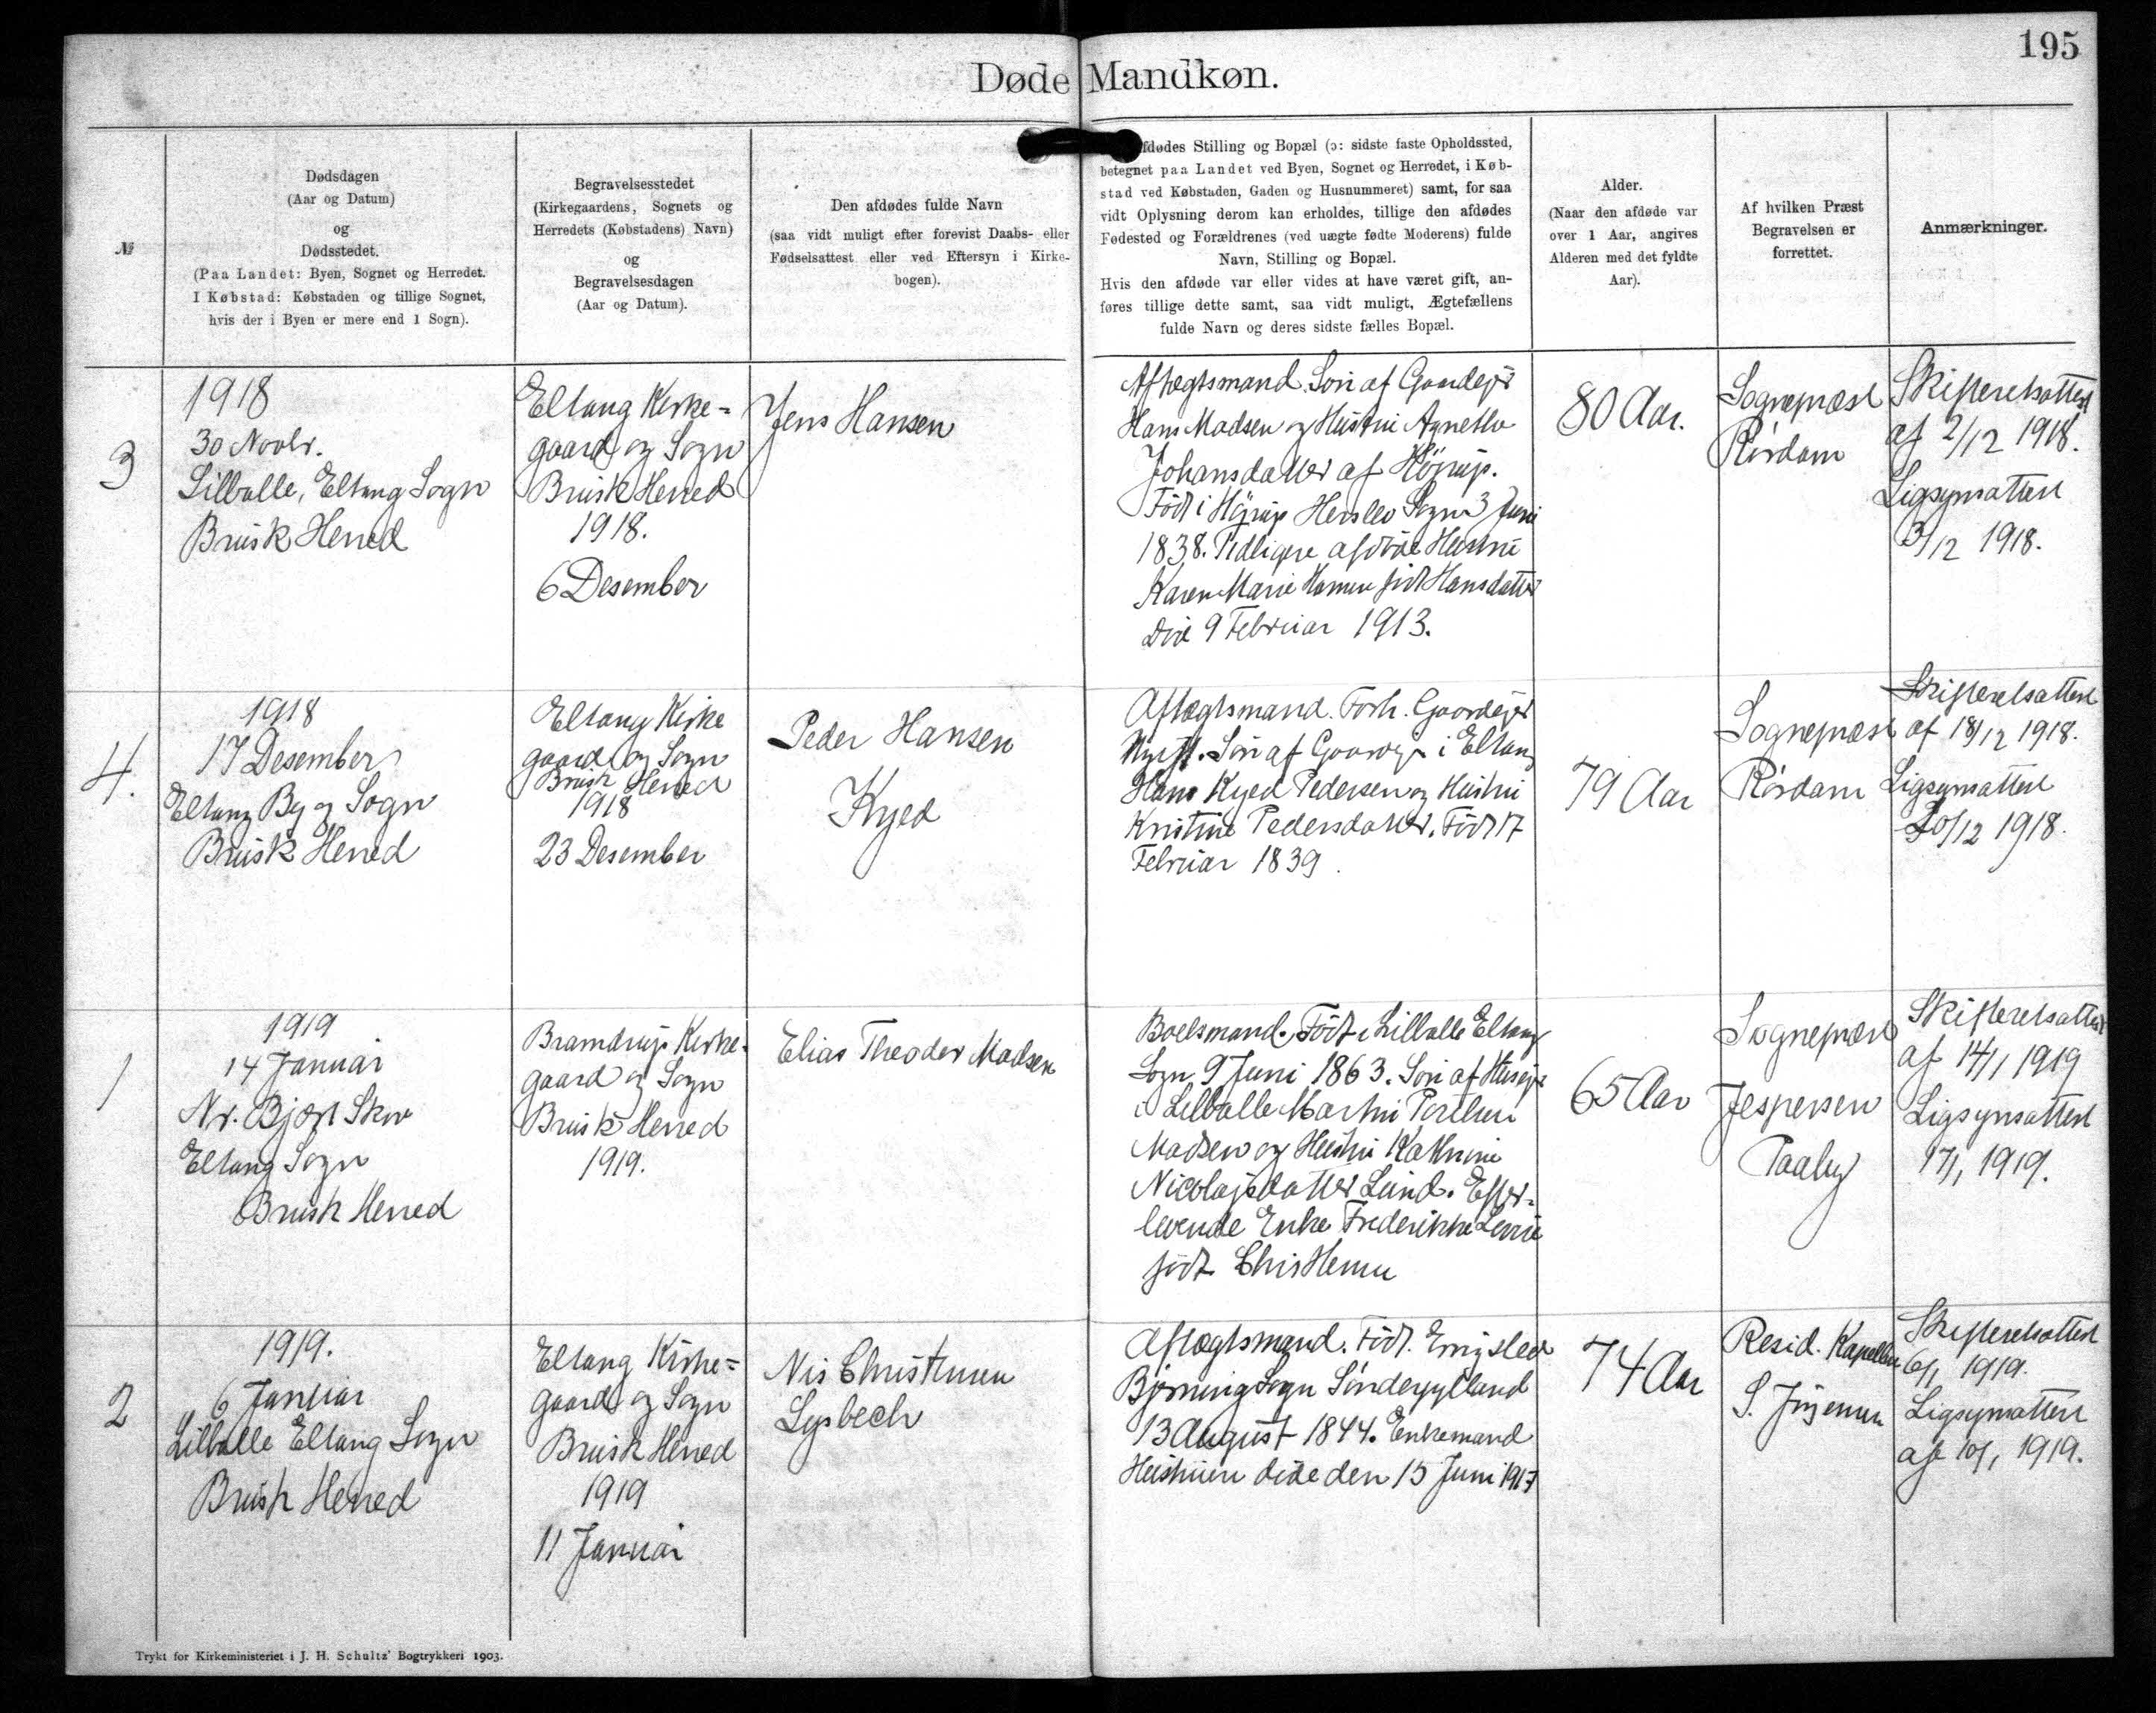 195
Døde Mandkøn.
№
Dødsdagen
(Aar og Datum)
og
Dødsstedet.
(Paa Landet: Byen, Sognet og Herredet.
I Købstad: Købstaden og tillige Sognet,
hvis der i Byen er mere end 1 Sogn).
Begravelsesstedet
(Kirkegaardens, Sognets og
Herredets (Købstadens) Navn)
og
Begravelsesdagen
(Aar og Datum).
Den afdødes fulde Navn
(saa vidt muligt efter forevist Daabs- eller
Fødselsattest eller ved Eftersyn i Kirke-
bogen).
fdødes Stilling og Bopæl (ɔ: sidste faste Opholdssted,
betegnet paa Landet ved Byen, Sognet og Herredet, i Køb-
stad ved Købstaden, Gaden og Husnummeret) samt, for saa
vidt Oplysning derom kan erholdes, tillige den afdødes
Fødested og Forældrenes (ved uægte fødte Moderens) fulde
Navn, Stilling og Bopæl.
Hvis den afdøde var eller vides at have været gift, an-
føres tillige dette samt, saa vidt muligt, Ægtefællens
fulde Navn og deres sidste fælles Bopæl.
Alder.
(Naar den afdøde var
over 1 Aar, angives
Alderen med det fyldte
Aar).
Af hvilken Præst
Begravelsen er
forrettet.
Anmærkninger.
3
1918
30 Novbr.
Lilballe, Eltang Sogn
Brusk Herred
Eltang Kirke=
gaard og Sogn
Brusk Herred
1918.
6 Desember
Jens Hansen
Aftægtsmand. Søn af Gaardejer
Hans Madsen og Hustru Agnethe
Johansdatter af Højrup.
Født i Højrup Herslev Sogn 3 Juni
1838. Tidligere afdøde Hustru
Karen Marie Hansen født Hansdatter
Død 9 Februar 1913.
80 Aar.
Sognepræst
Rørdam
Skifteretsattest
af 2/12 1918.
Ligsynsattest
3/12 1918.
4.
1918
17 Desember
Eltang By og Sogn
Brusk Herred
Eltang Kirke
gaard og Sogn
Brusk Herred
1918
23 Desember
Peder Hansen
Kyed
Aftægtsmand. Forh. Gaardejer
Ugift. Søn af Gaardejer i Eltang
Hans Kyed Pedersen og Hustru
Kristine Pedersdatter. Født 17
Februar 1839.
79 Aar
Sognepræst
Rørdam
Skifteretsattest
af 18/12 1918.
Ligsynsattest
20/12 1918.
1
1919
14 Januar
Nr. Bjært Skov
Eltang Sogn
Brusk Herred
Bramdrup Kirke-
gaard og Sogn
Brusk Herred
1919.
Elias Theodor Madsen
Boelsmand. Født i Lilballe Eltang
Sogn 9 Juni 1863. Søn af Husejer
i Lilballe Martin
Madsen og Hustru Kathrine
Nicolajsdatter Lund. Efter-
levende Enke Frederikke
født Christensen
65 Aar
Sognepræst
Jespersen
Paaby
Skifteretsattest
af 14/1 1919
Ligsynsattest
17/1 1919.
2
1919.
6 Januar
Lilballe Eltang Sogn
Brusk Herred
Eltang Kirke=
gaard og Sogn
Brusk Herred
1919
11 Januar
Nis Christensen
Lysbech
Aftægtsmand. Født.
Bjerning Sogn Sønderjylland
13 August 1844. Enkemand
Hustruen døde den 15 Juni 1917
74 Aar
Resid. Kapellan
S. Jørgensen
Skifteretsattest
6/1 1919.
Ligsynsattest
af 10/1 1919.
Trykt for Kirkeministeriet i J. H. Schultz' Bogtrykkeri 1903.